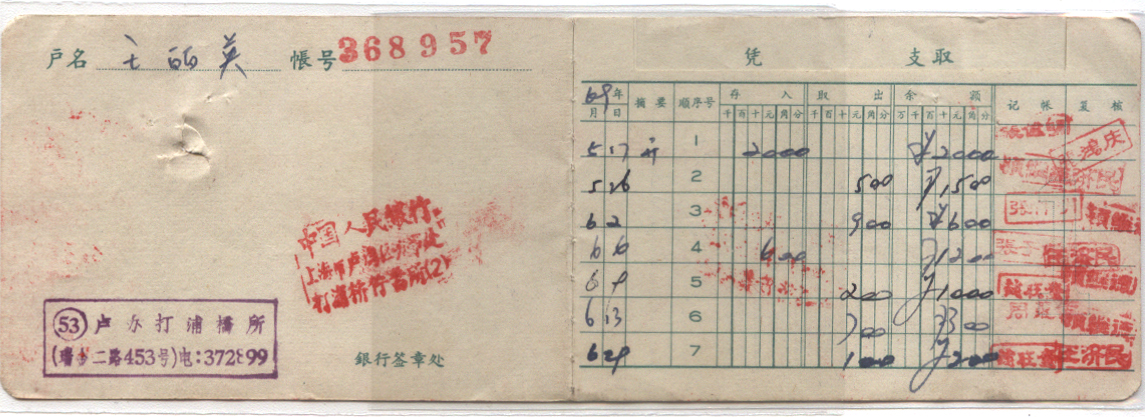 户名 王丽英 帳号 368957
中国人民銀行
上海市卢湾区办事处
打浦桥储蓄所(2)
(53) 卢办打浦橋所
(瑞金二路453号)电:372899
銀行签章处
凭 支取
69年 摘要 順序号 存入 取出 余額 记帐 复核
月 日 千百十元角分 千百十元角分 万千百十元角分
5 17 开 1 2000 ¥2000
5 26 2 500 ¥1500
6 2 3 900 ¥600
6 6 4 600 ¥1200
6 9 5 200 ¥1000
6 13 6 700 ¥300
6 29 7 100 ¥200 王济民